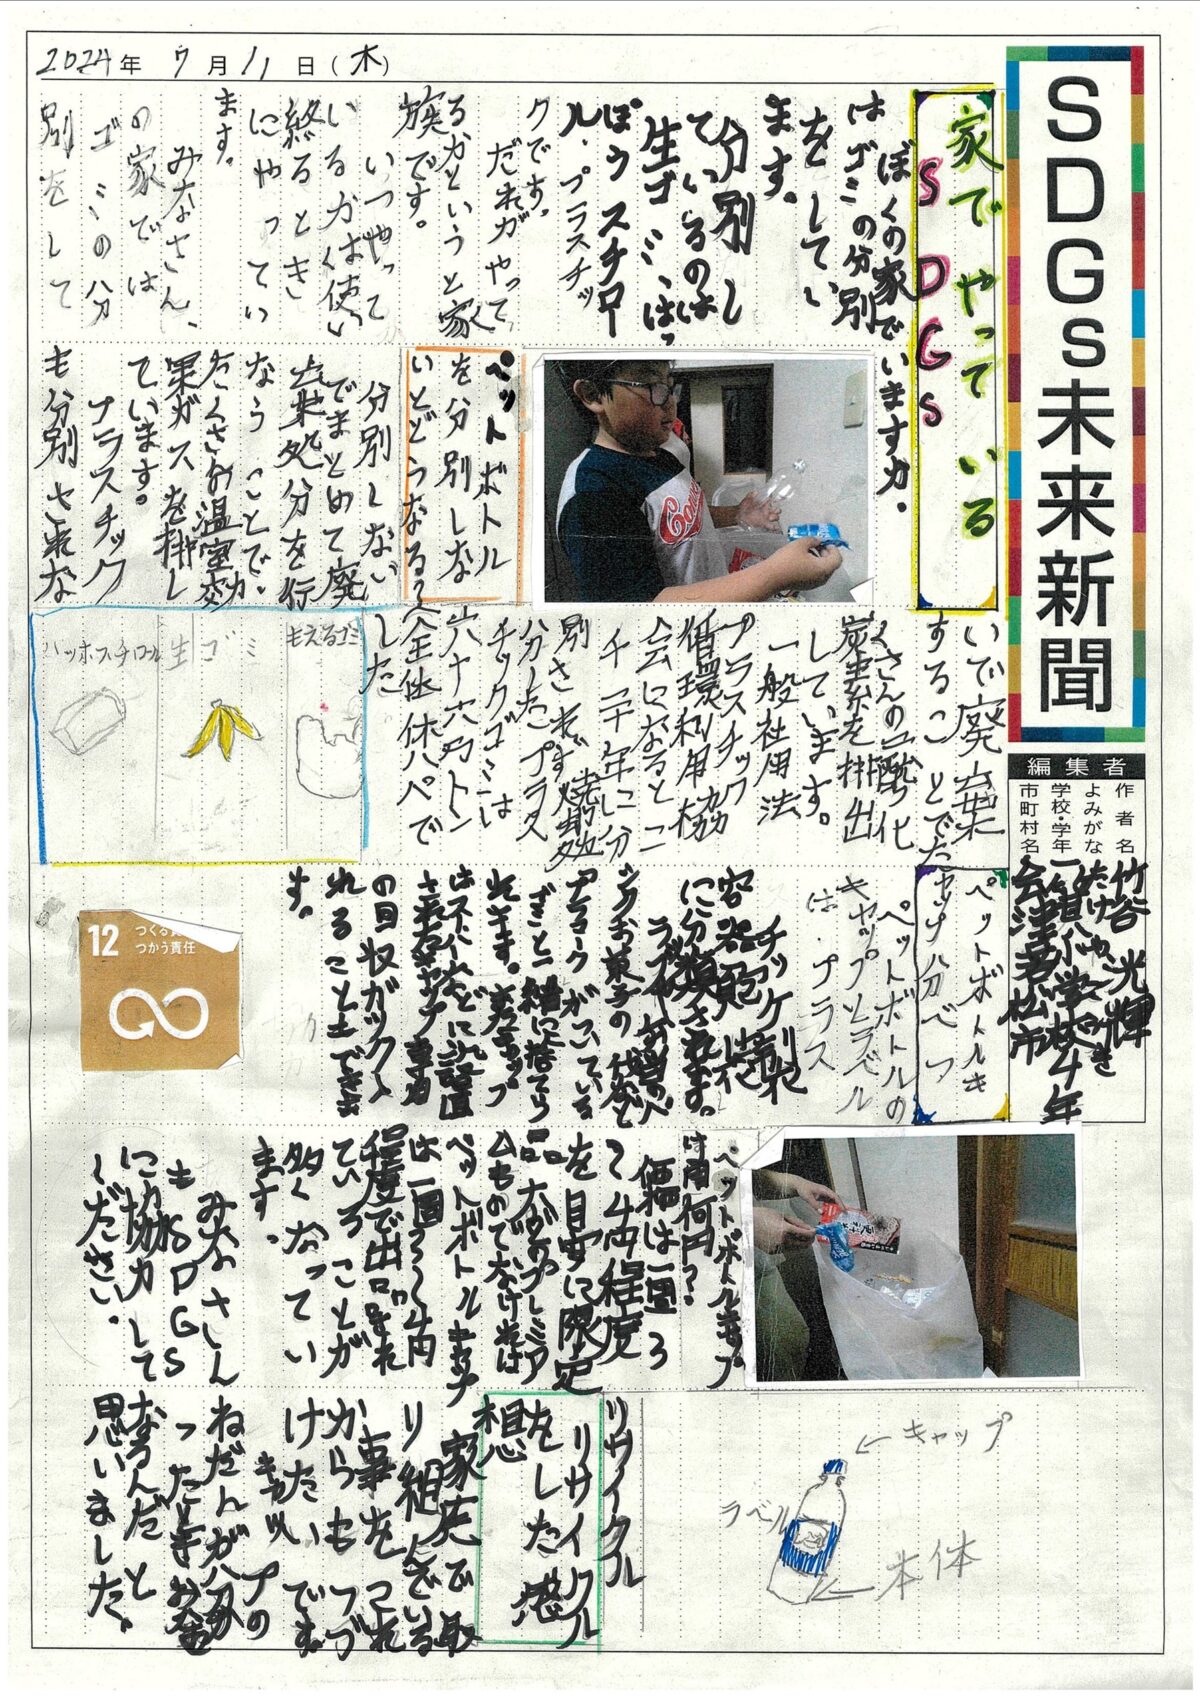 2024年 7月11日(木)
SDGs未来新聞
編集者
作者名
よみがな
学校・学年
市町村名
竹谷 光輝
一箕小学校4年
会津若松市
家でやっている
SDGs
ぼくの家でいますか。
はゴミの分別
をしてい
ます。
分別し
ているのは、
生ゴミ、はっ
ぽうスチロー
ル、プラスチッ
クです。
だれがやって
るかというと家
族です。
いつやって
いるかは使い
終るとき
にやってい
ます。
みなさん、
の家では
ゴミの分
別をして
ペットボトル
を分別しな
いとどうなる?
分別しない
でまとめて廃
棄処分を行
なうことで、
たくさんの温室効
果ガスを排し
ています。
プラスチック
も分別されな
いで廃棄
することでた
くさんの二酸化
炭素を排出
しています。
一般社用法
プラスチック
循環利用協
会になると二
千二十年に分
別されず焼却処
分したプラス
チックゴミは
六十六万トン
全体
した
もえるゴミ
生ゴミ
ハッポスチロール
ペットボトルキ
ャップ分べつ
ペットボトルの
キャップとラベル
は、プラス
チック製
容器包装
に分類されます。
ラベル
お菓子の袋など
マークがついている
ごと一緒に捨てら
れます。
の回収ボックス
れることもできま
す。
12 つくる責任
つかう責任
ペットボトルキャップ
は何円?
価は一個3
〜4円程度
を目安に限定
品などのプレミア
ムものでなければ
ペットボトルキャップ
は一個3〜4円
程度で出品され
ていることが
多くなってい
ます。
みなさん
もSDGS
に協力して
ください。
リサイクル
リサイクル
をした感
想
家庭で取
り組んでいる
事をこれ
からもつづ
けたいです。
キャップの
ねだんが分か
ったときお金
なるんだと
思いました。
←キャップ
ラベル
←本体